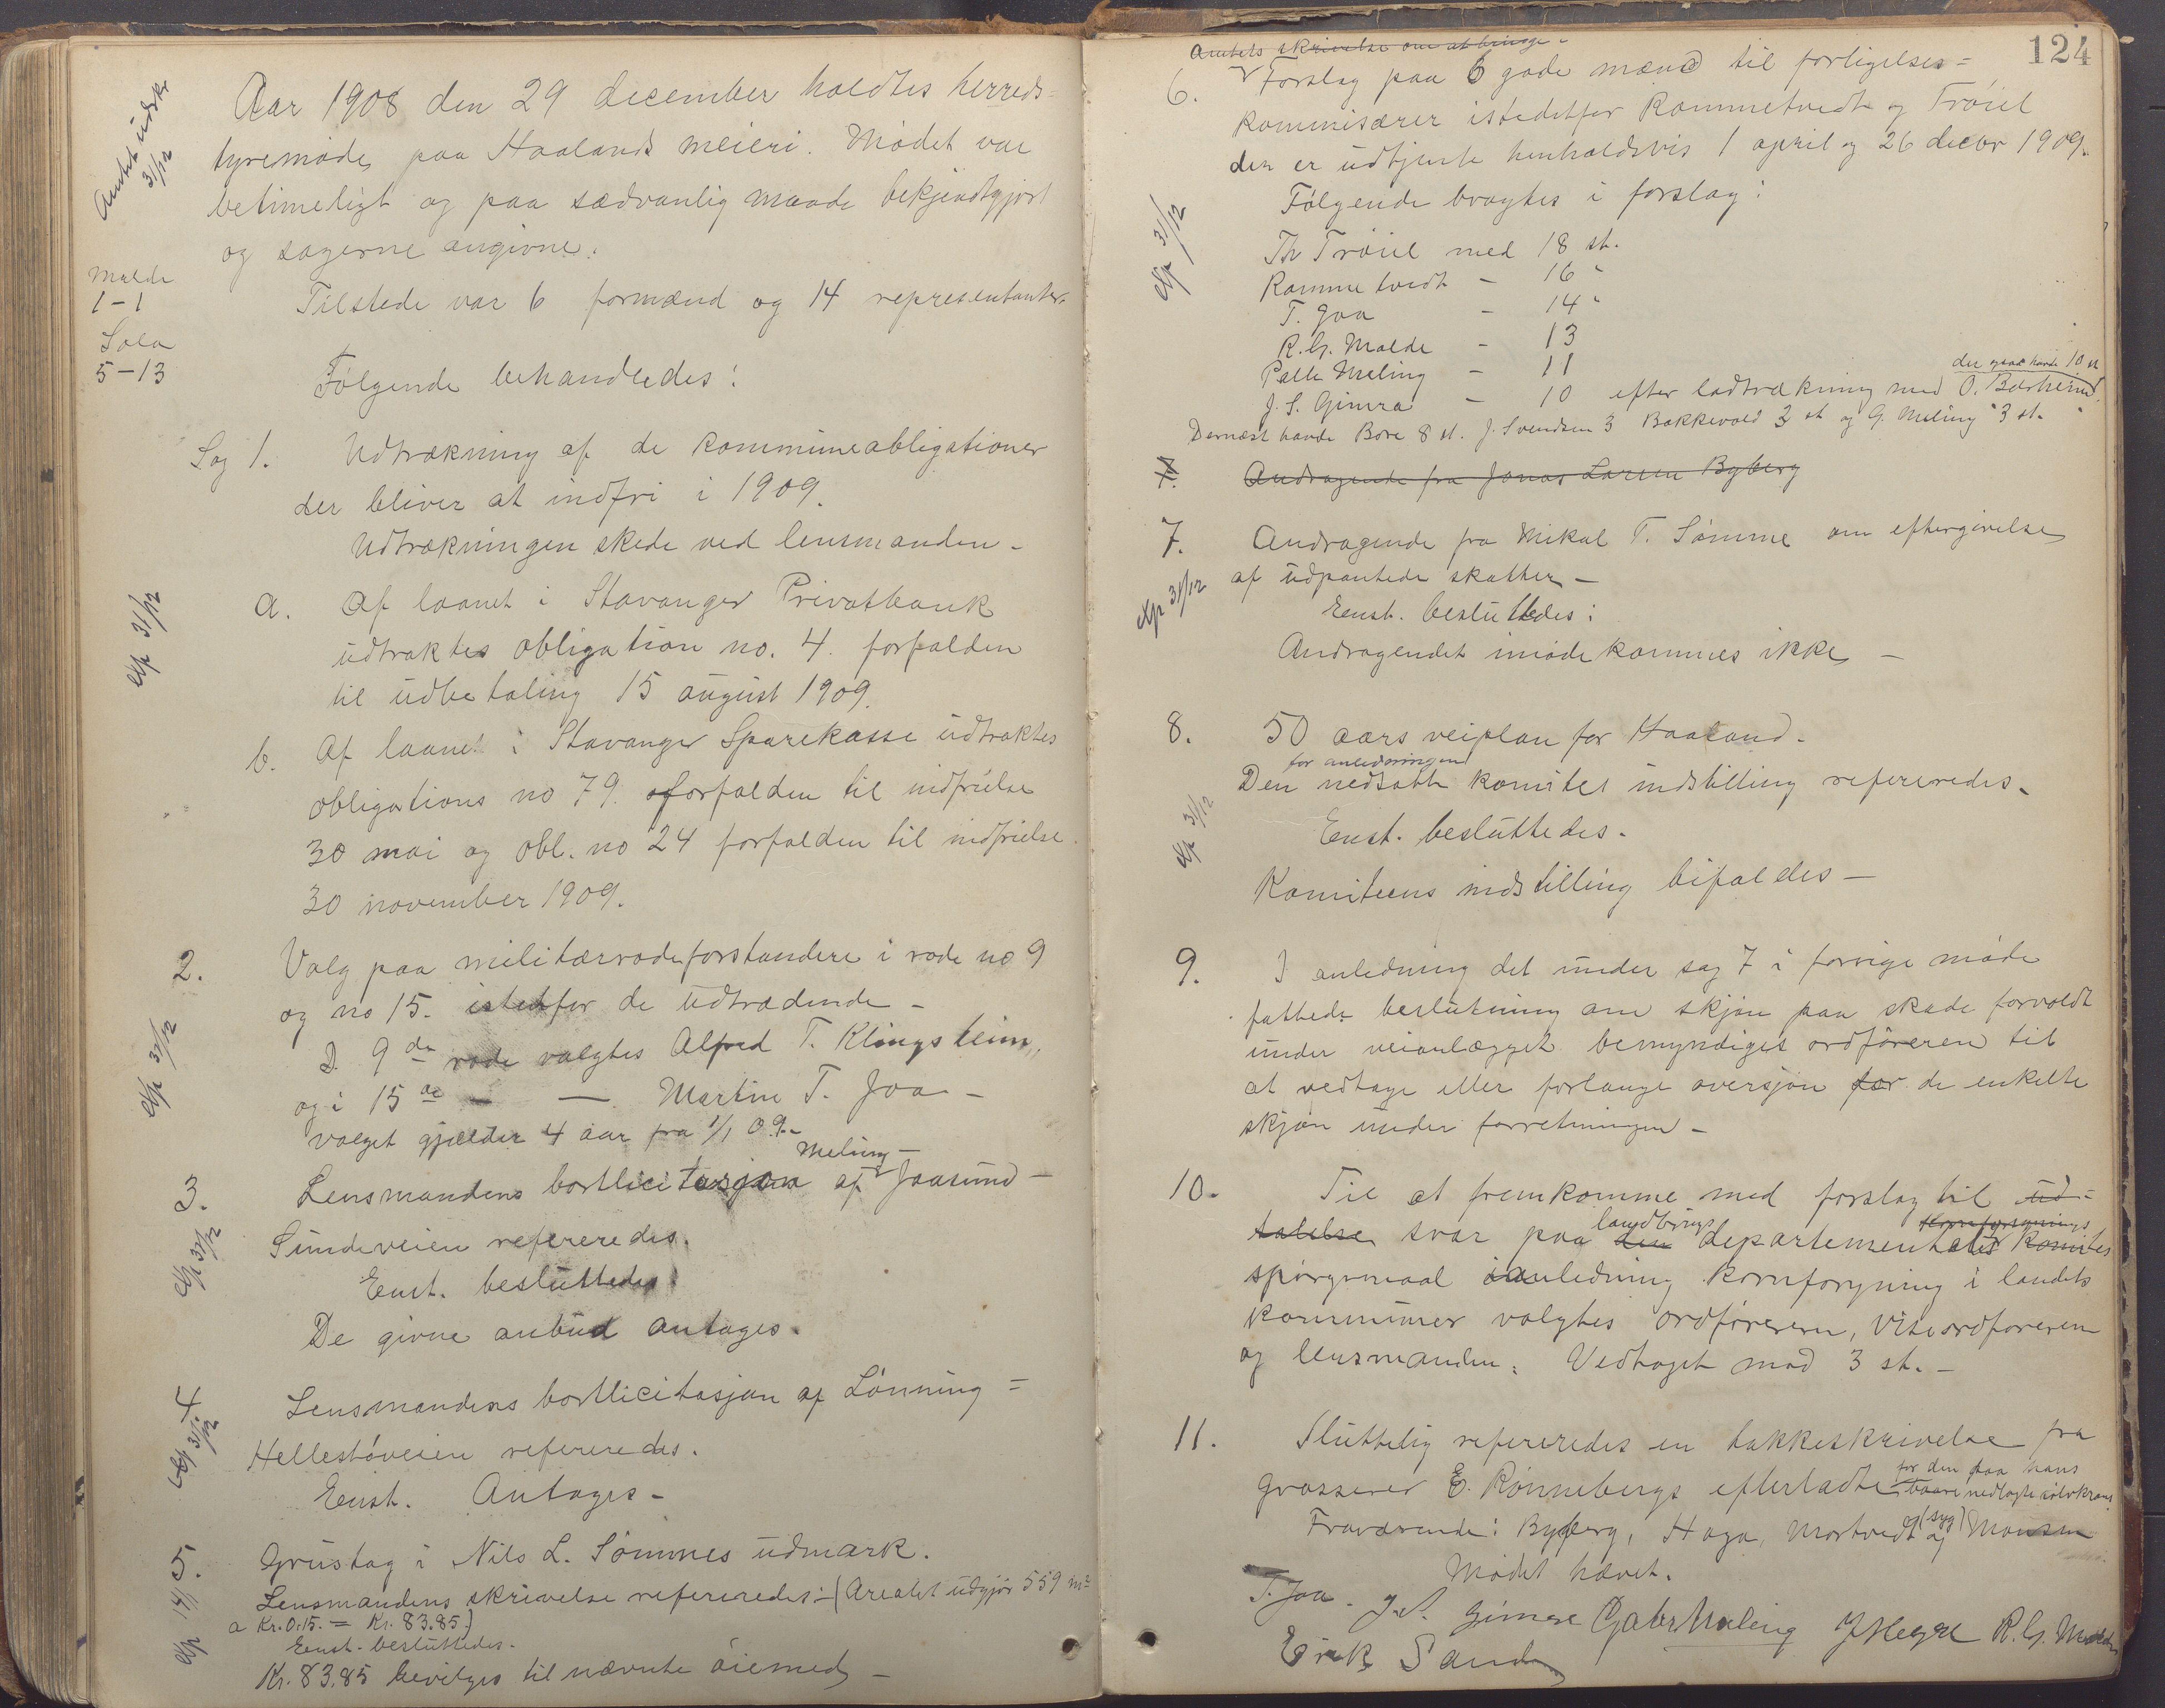 Aar 1908 den 29 december holdtes herreds-
tyremøde, paa Haalands meieri. Mødet var
betimeligt og paa sædvanlig maade bekjendtgjort
og sagerne angivne.
Amtet udskr 31/12
Malde
1-1
Sola
5-13
Tilstede var 6 formænd og 14 representanter.
Følgende behandledes:
Sag 1. Udtrækning af de kommuneobligationer
der bliver at indfri i 1909.
Udtrækningen skede ved lensmanden -
Exp 31/12
a. Af laanet i Stavanger Privatbank
udtraktes obligation no. 4. forfalden
til udbetaling 15 august 1909.
b. Af laanet i Stavanger Sparekasse udtraktes
obligations no 79. forfalden til indfrielse
30 mai og obl. no 24 forfalden til indfrielse
30 november 1909.
2. Valg paa militærrodeforstandere i rode no 9
og no 15. istedfor de udtrædende -
Exp 31/12
I 9de rode valgtes Alfred T. Klingsheim,
og i 15de - — Martin T. Joa -
valget gjælder 4 aar fra 1/1 09.
3. Lensmandens bortlicitasjon af Meling - Jaasund -
Exp 31/12
Sundeveien refereredes.
Enst. besluttedes
De givne anbud antages.
4. Lensmandens bortlicitasjon af Lønning =
Exp 31/12
Hellestøveien refereredes.
Enst. Antages -
5. Grustag i Nils L. Sømmes udmark.
Lensmandens skrivelse refereredes - (Arealet udgjør 559 m²
a Kr. 0.15. = Kr. 83.85)
Enst. besluttedes.
Kr. 83.85 bevilges til nævnte øiemed -
124
Amtets skrivelse om at bringe -
6. Forslag paa 6 gode mænd til forligelses=
kommisærer istedetfor Rommetvedt og Trøiel
der er udtjente henholdsvis 1 april og 26 decbr 1909.
Følgende bragtes i forslag:
Exp 31/12
Th Trøiel med 18 st.
Rommetvedt - 16 "
T. Joa - 14 "
R. G. Malde - 13
Palle Meling - 11
J. S. Gimra - 10 efter lodtrækning med O. Barheim der ogsaa havde 10 st
Dernæst havde Bore 8 st. J. Svendsen 3 Bakkevold 3 st og G. Meling 3 st.
7. Andragende fra Jonas Larsen Byberg
7. Andragende fra Mikal T. Sømme om eftergivelse
af udpantede skatter -
Exp 31/12
Enst. besluttedes:
Andragendet imødekommes ikke -
8. 50 aars veiplan for Haaland.
for anledningen
Den nedsatte komites indstilling refereredes.
Exp 31/12
Enst. besluttedes.
Komiteens indstilling bifaldes -
9. I anledning det under sag 7 i forrige møde
fattede beslutning om skjøn paa skade forvoldt
under veianlægget bemyndiges ordføreren til
at vedtage eller forlange oversjøn for de enkelte
skjøn under forretningen -
10. Til at fremkomme med forslag til ud=
talelse svar paa den landbrugs departementets Kornforsynings komites
spørgsmaal i anledning kornforsyning i landets
kommuner valgtes ordføreren, Viseordføreren
og lensmanden. Vedtaget mod 3 st. -
11. Sluttelig refereredes en takkeskrivelse fra
grosserer E. Rønnebergs efterladte for den paa hans baare nedlagte sølvkrans
Fraværende: Byberg, Haga, Mortvedt (syg) og Monsen
Mødet hævet.
T. Joa. J. S. Gimre Gabr Meling J Hegre R. G. Malde
Erik Sande